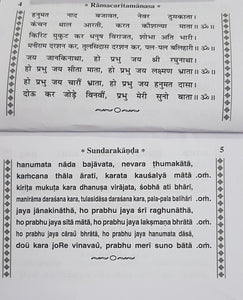 4
Rāmacuritamānasa
हनुमत नाद बजावत, नेवर ठुमकाता।
कंचन थाल आरती, करात कौशल्या माता ॥ॐ॥
किरिट मुकुट कर धनुष विराजत, शोभा अति भारी।
मनीराम दराशन कर, तुलसिदास दरशन कर, पल-पल बलिहारी ॥ॐ॥
जय जानकिनाथा, हो प्रभु जय श्री रघुनाथा।
हो प्रभु जय सीता माता, हो प्रभु जय लक्ष्मण भ्राता ॥ॐ॥
हो प्रभु जय चारौं भ्राता, हो प्रभु जय हनुमत दासा।
दोऊ कर जोड़े विनवौं, प्रभु मेरी सुनो बाता ॥ॐ॥
Sundarakāṇḍa
5
hanumata nāda bajāvata, nevara ṭhumakātā,
kaṁcana thāla āratī, karata kauśalyā mātā .oṁ.
kiriṭa mukuṭa kara dhanuṣa virājata, śobhā ati bhārī,
manirāma darāśana kara, tulasidāsa darāśana kara, pala-pala balihārī .oṁ.
jaya jānakināthā, ho prabhu jaya śrī raghunāthā,
ho prabhu jaya sītā mātā, ho prabhu jaya lakṣmaṇa bhrātā .oṁ.
ho prabhu jaya cāraũ bhrātā, ho prabhu jaya hanumata dāsā,
doū kara joRe vinavaũ, prabhu merī suno bātā .oṁ.